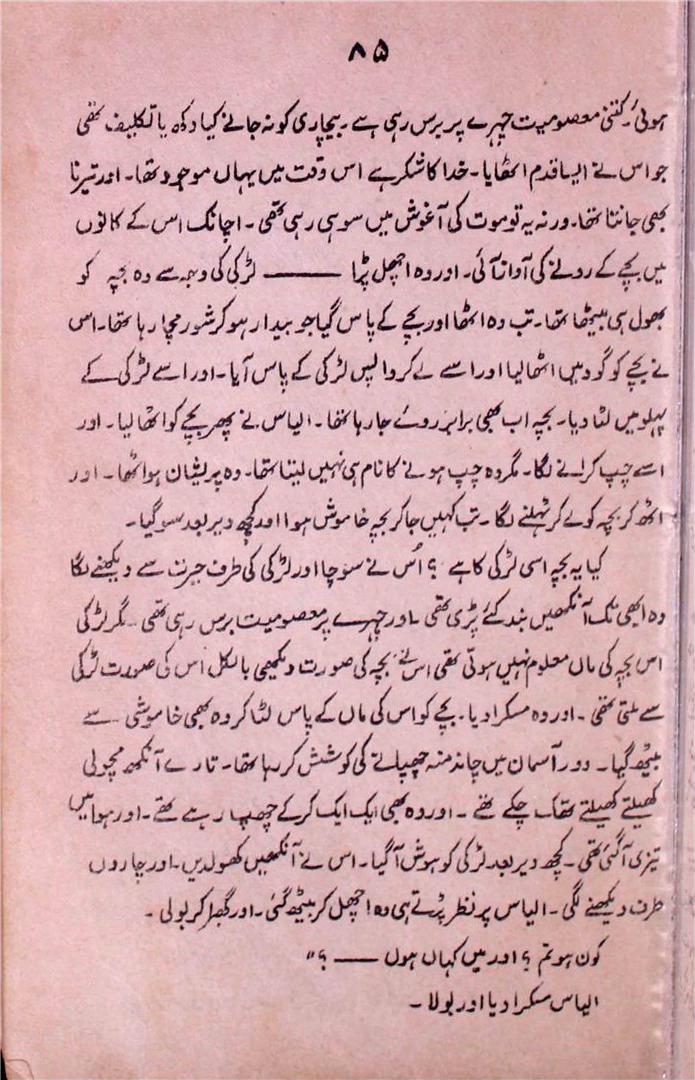 ۸۵
ہوئی۔ کتنی معصومیت چہرے پر برس رہی ہے۔ بیچاری کو نہ جانے کیا دکھ یا تکلیف تھی
جو اس نے ایسا قدم اٹھایا۔ خدا کا شکر ہے اس وقت میں یہاں موجود تھا۔ اور تیرنا
بھی جانتا تھا۔ ورنہ یہ تو موت کی آغوش میں سو ہی رہی تھی۔ اچانک اس کے کانوں
میں بچے کے رونے کی آواز آئی۔ اور وہ اچھل پڑا ——— لڑکی کی وجہ سے وہ بچہ کو
بھول ہی بیٹھا تھا۔ تب وہ اٹھا اور بچے کے پاس گیا جو بیدار ہو کر شور مچا رہا تھا۔ اس
نے بچے کو گود میں اٹھا لیا اور اسے لے کر واپس لڑکی کے پاس آیا۔ اور اسے لڑکی کے
پہلو میں لٹا دیا۔ بچہ اب بھی برابر روئے جا رہا تھا۔ الیاس نے پھر بچے کو اٹھا لیا۔ اور
اسے چپ کرانے لگا۔ مگر وہ چپ ہونے کا نام ہی نہیں لیتا تھا۔ وہ پریشان ہو اٹھا۔ اور
اٹھ کر بچہ کو لے کر ٹہلنے لگا۔ تب کہیں جا کر بچہ خاموش ہوا اور کچھ دیر بعد سو گیا۔
کیا یہ بچہ اسی لڑکی کا ہے ؟ اُس نے سوچا اور لڑکی کی طرف حیرت سے دیکھنے لگا
وہ ابھی تک آنکھیں بند کئے پڑی تھی۔ اور چہرے پر معصومیت برس رہی تھی۔ مگر لڑکی
اس بچہ کی ماں معلوم نہیں ہوتی تھی اس نے بچہ کی صورت دیکھی بالکل اس کی صورت لڑکی
سے ملتی تھی۔ اور وہ مسکرا دیا۔ بچے کو اس کی ماں کے پاس لٹا کر وہ بھی خاموشی سے
بیٹھ گیا۔ دور آسمان میں چاند منہ چھپانے کی کوشش کر رہا تھا۔ تارے آنکھ مچولی
کھیلتے کھیلتے تھک چکے تھے۔ اور وہ بھی ایک ایک کر کے چھپ رہے تھے۔ اور ہوا میں
تیزی آ گئی تھی۔ کچھ دیر بعد لڑکی کو ہوش آ گیا۔ اس نے آنکھیں کھول دیں۔ اور چاروں
طرف دیکھنے لگی۔ الیاس پر نظر پڑتے ہی وہ اچھل کر بیٹھ گئی۔ اور گھبرا کر بولی۔
کون ہو تم ؟ اور میں کہاں ہوں —— ؟"
الیاس مسکرا دیا اور بولا۔